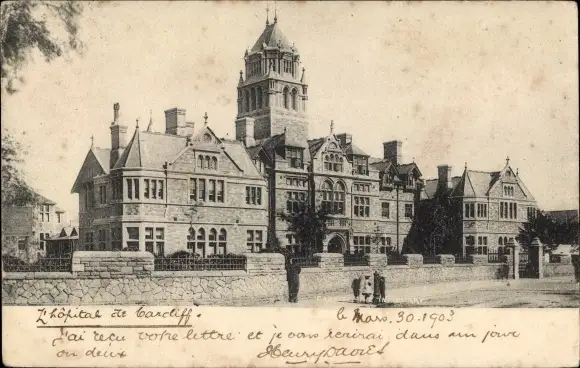 L'hôpital de Cardiff.
le Mars. 30. 1903
J'ai reçu votre lettre et je vous écrirai dans un jour
ou deux
Henry Davies